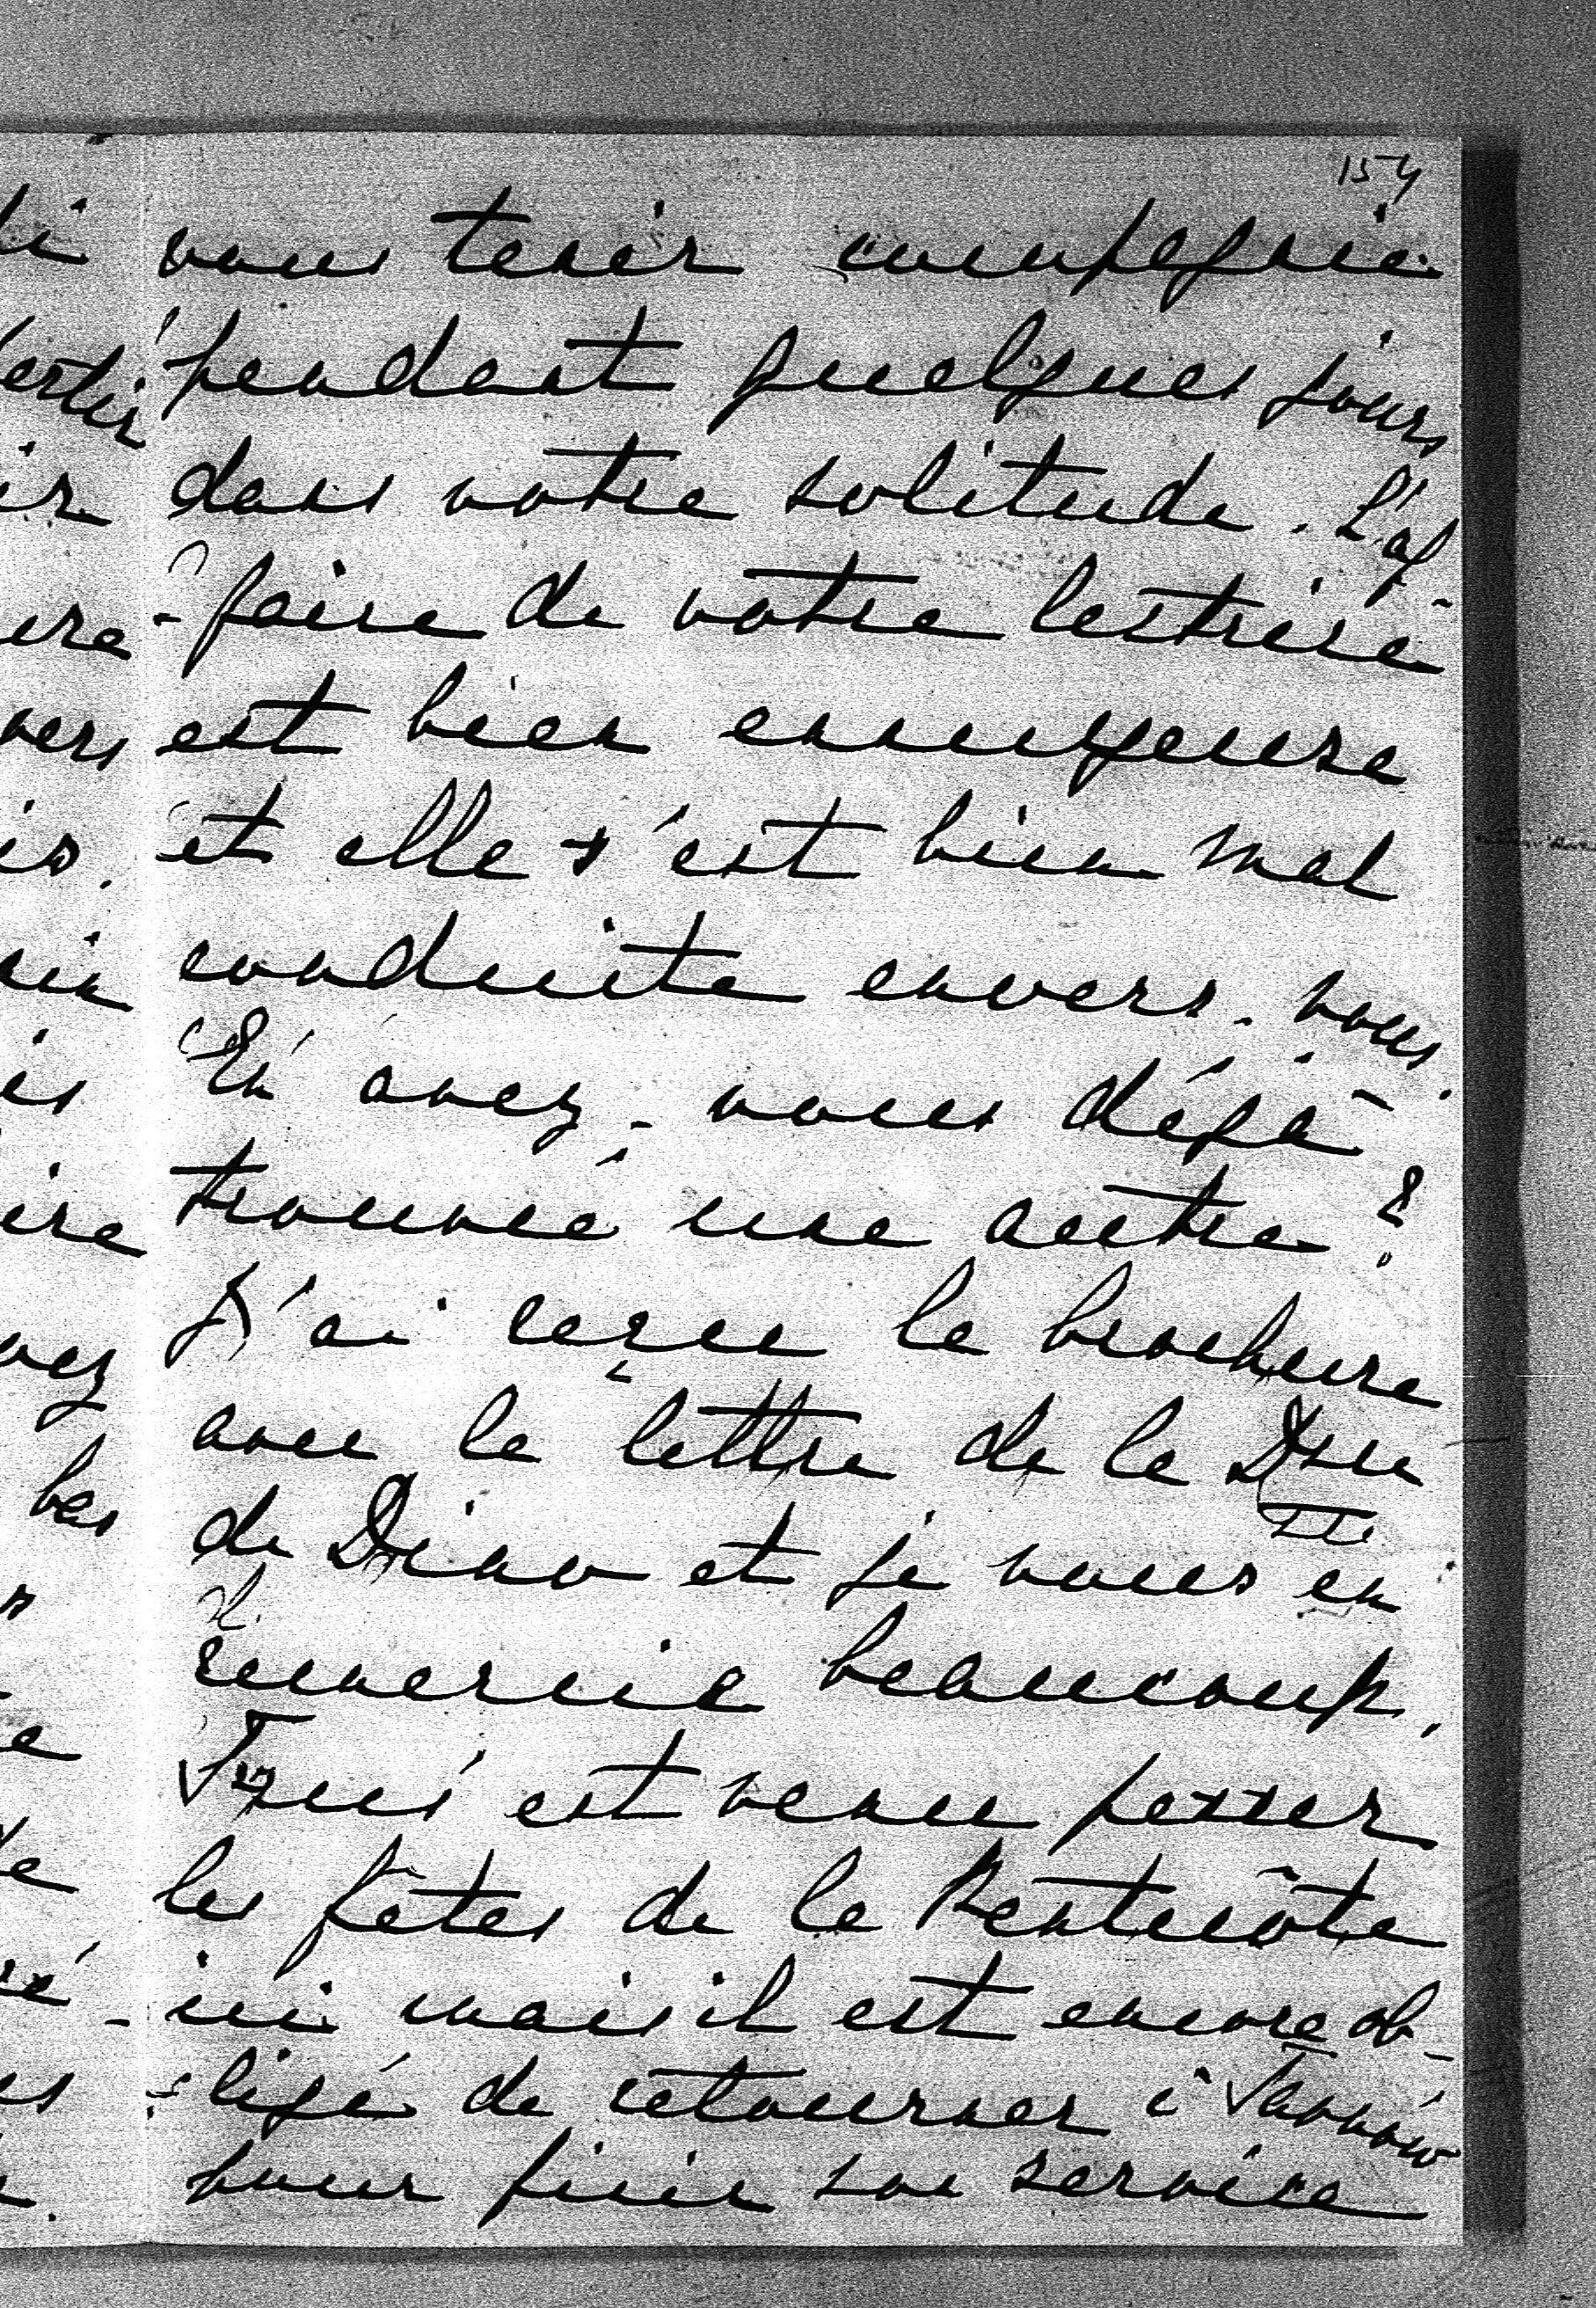 154
vous tenir compagnie
pendant quelques jours
dans votre solitude. L'af-
-faire de votre lectrice
est bien ennuyeuse
et elle s'est bien mal
conduite envers vous.
En avez-vous déjà
trouvée une autre?
J'ai reçu la brochure
avec la lettre de la Dsse
de Dino et je vous en
remercie beaucoup.
est venu passer
les fêtes de la Pentecôte
ici mais il est encore ob-
-ligé de retourner à Tarnów
pour finir son service